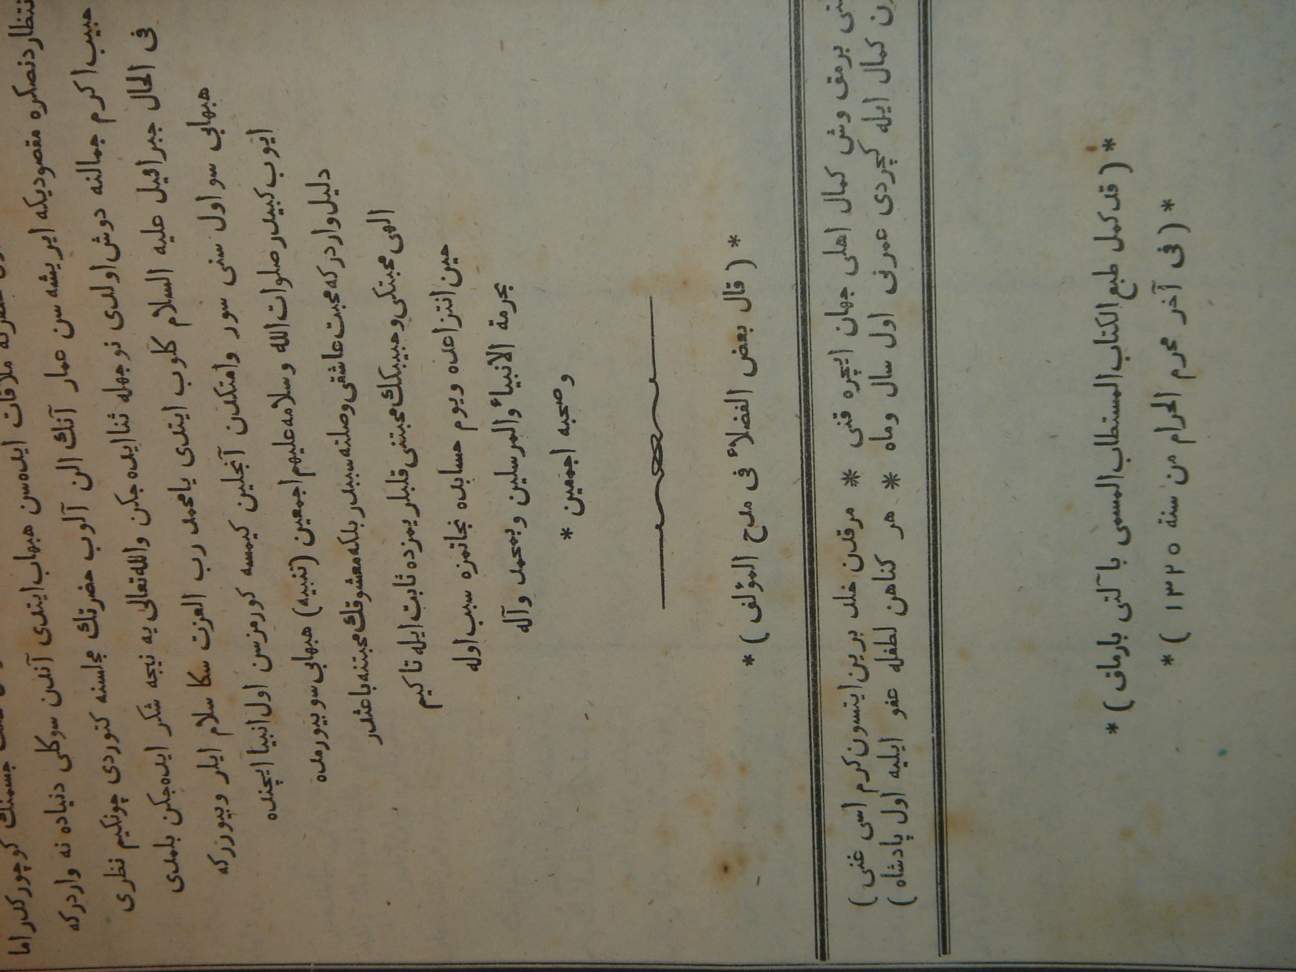 جسمنك كوچوركلر اما
انتظار دنصكره مقصوديكه ايريشه سن عمار آنك الن آلوب حضرتك مجلسنه كتوردى چونكيم نظرى
ملاقات ايده سن هبهاب ايتدى آندن سوكلى دنياده نه واردركه
حبيب اكرم جمالنه دوش اولدى نوجهله ثنا ايده جكن والله تعالى يه نيجه شكر ايده جكن بلمدى
فى الحال جبرائيل عليه السلام كلوب ايتدى يا محمد رب العزت سكا سلام ايلر و بيوررکه
هبهابى سو اول سنى سور وامتكدن آنجلين كيمسه كورمزسن اول انبيا ايچنده
ايوب كبيدر صلوات الله وسلامه عليهم اجمعين (تنبيه) هبهابى سو بيورمده
دليل واردركه محبت عاشقى وصلته سببدر بلكه معشوقك محبتنه باعثدر
الهى محبتكى وحبيبكك محبتنى قلبلريمزده ثابت ايله تا كيم
حين انتزاعده ويوم حسابده نجاتمزه سبب اوله
بحرمة الانبياء والمرسلين وبمحمد وآله
وصحبه اجمعين *
* (قال بعض الفضلاء فى مدح المؤلف) *
برمق وش كمال اهلى جهان ايچره فنى * مرقدن خلد برين ايتسون كرم اسى غنى)
كمال ايله كچردى عمرنى اول سال وماه * هر كناهن لطفله عفو ايليه اول پادشاه)
* (قد كمل طبع الكتاب المستطاب المسمى بآلتى بارماق) *
* (فى آخر محرم الحرام من سنة ١٣٢٥) *